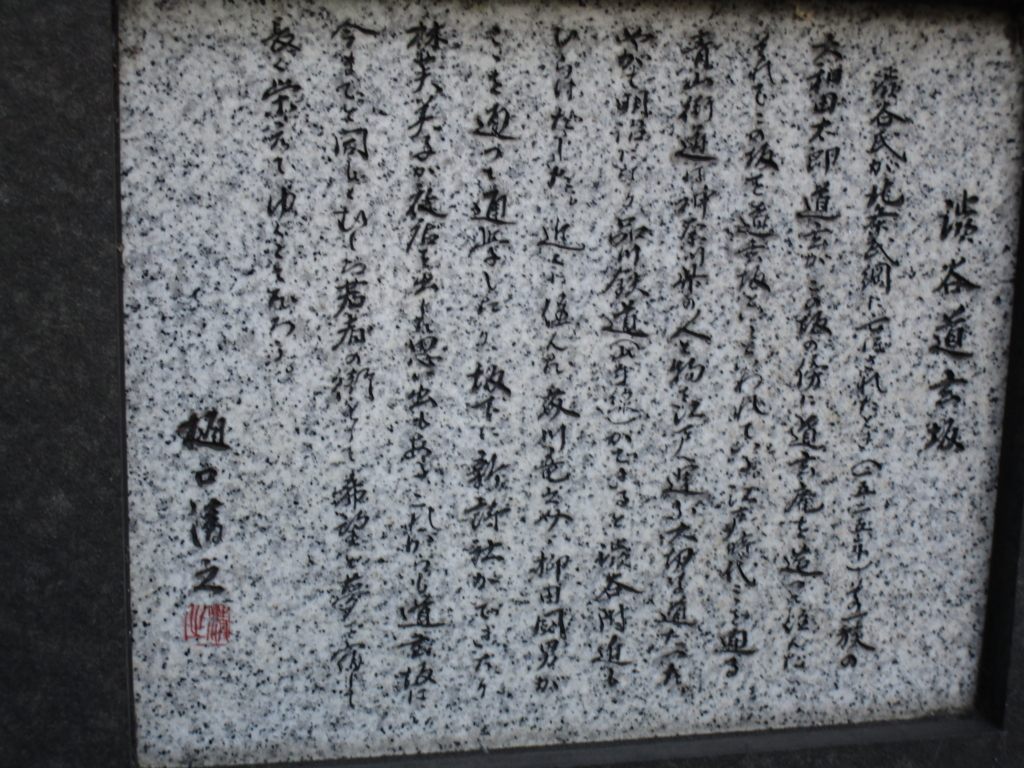 渋谷道玄坂
渋谷氏が北条氏綱に亡ぼされたとき(一五二五年)その一族の
大和田太郎道玄がこの坂の傍に道玄庵を造って住んだ
それでこの坂を道玄坂といわれている江戸時代ここを通る
青山街道は神奈川県の人と物を江戸へ運ぶ大切な道だった
やがて明治になり品川鉄道(山手線)ができると渋谷附近も
ひらけだした。近くに住んだ 柳田国男が
ここを通って通学したり坂下に新詩社ができたり
林芙美子が夜店を出した思い出もあるこれからも道玄坂は
今までと同じくむしろ若者の街として希望と夢を宿して
長く栄えてゆくことだろう。
樋口清之